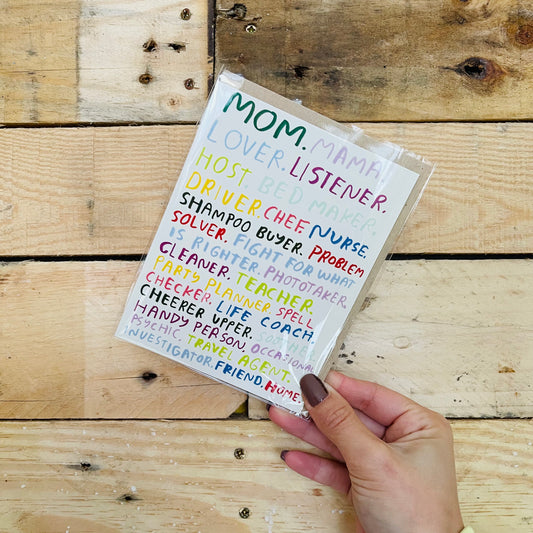 MOM. MAMA.
LOVER. LISTENER.
HOST. BED MAKER.
DRIVER. CHEF. NURSE.
SHAMPOO BUYER. PROBLEM
SOLVER. FIGHT FOR WHAT
IS RIGHTER. PHOTOTAKER.
CLEANER. TEACHER.
PARTY PLANNER. SPELL
CHECKER. LIFE COACH.
CHEERER UPPER.
HANDY PERSON. OCCASIONAL
PSYCHIC. TRAVEL AGENT.
INVESTIGATOR. FRIEND. HOME.